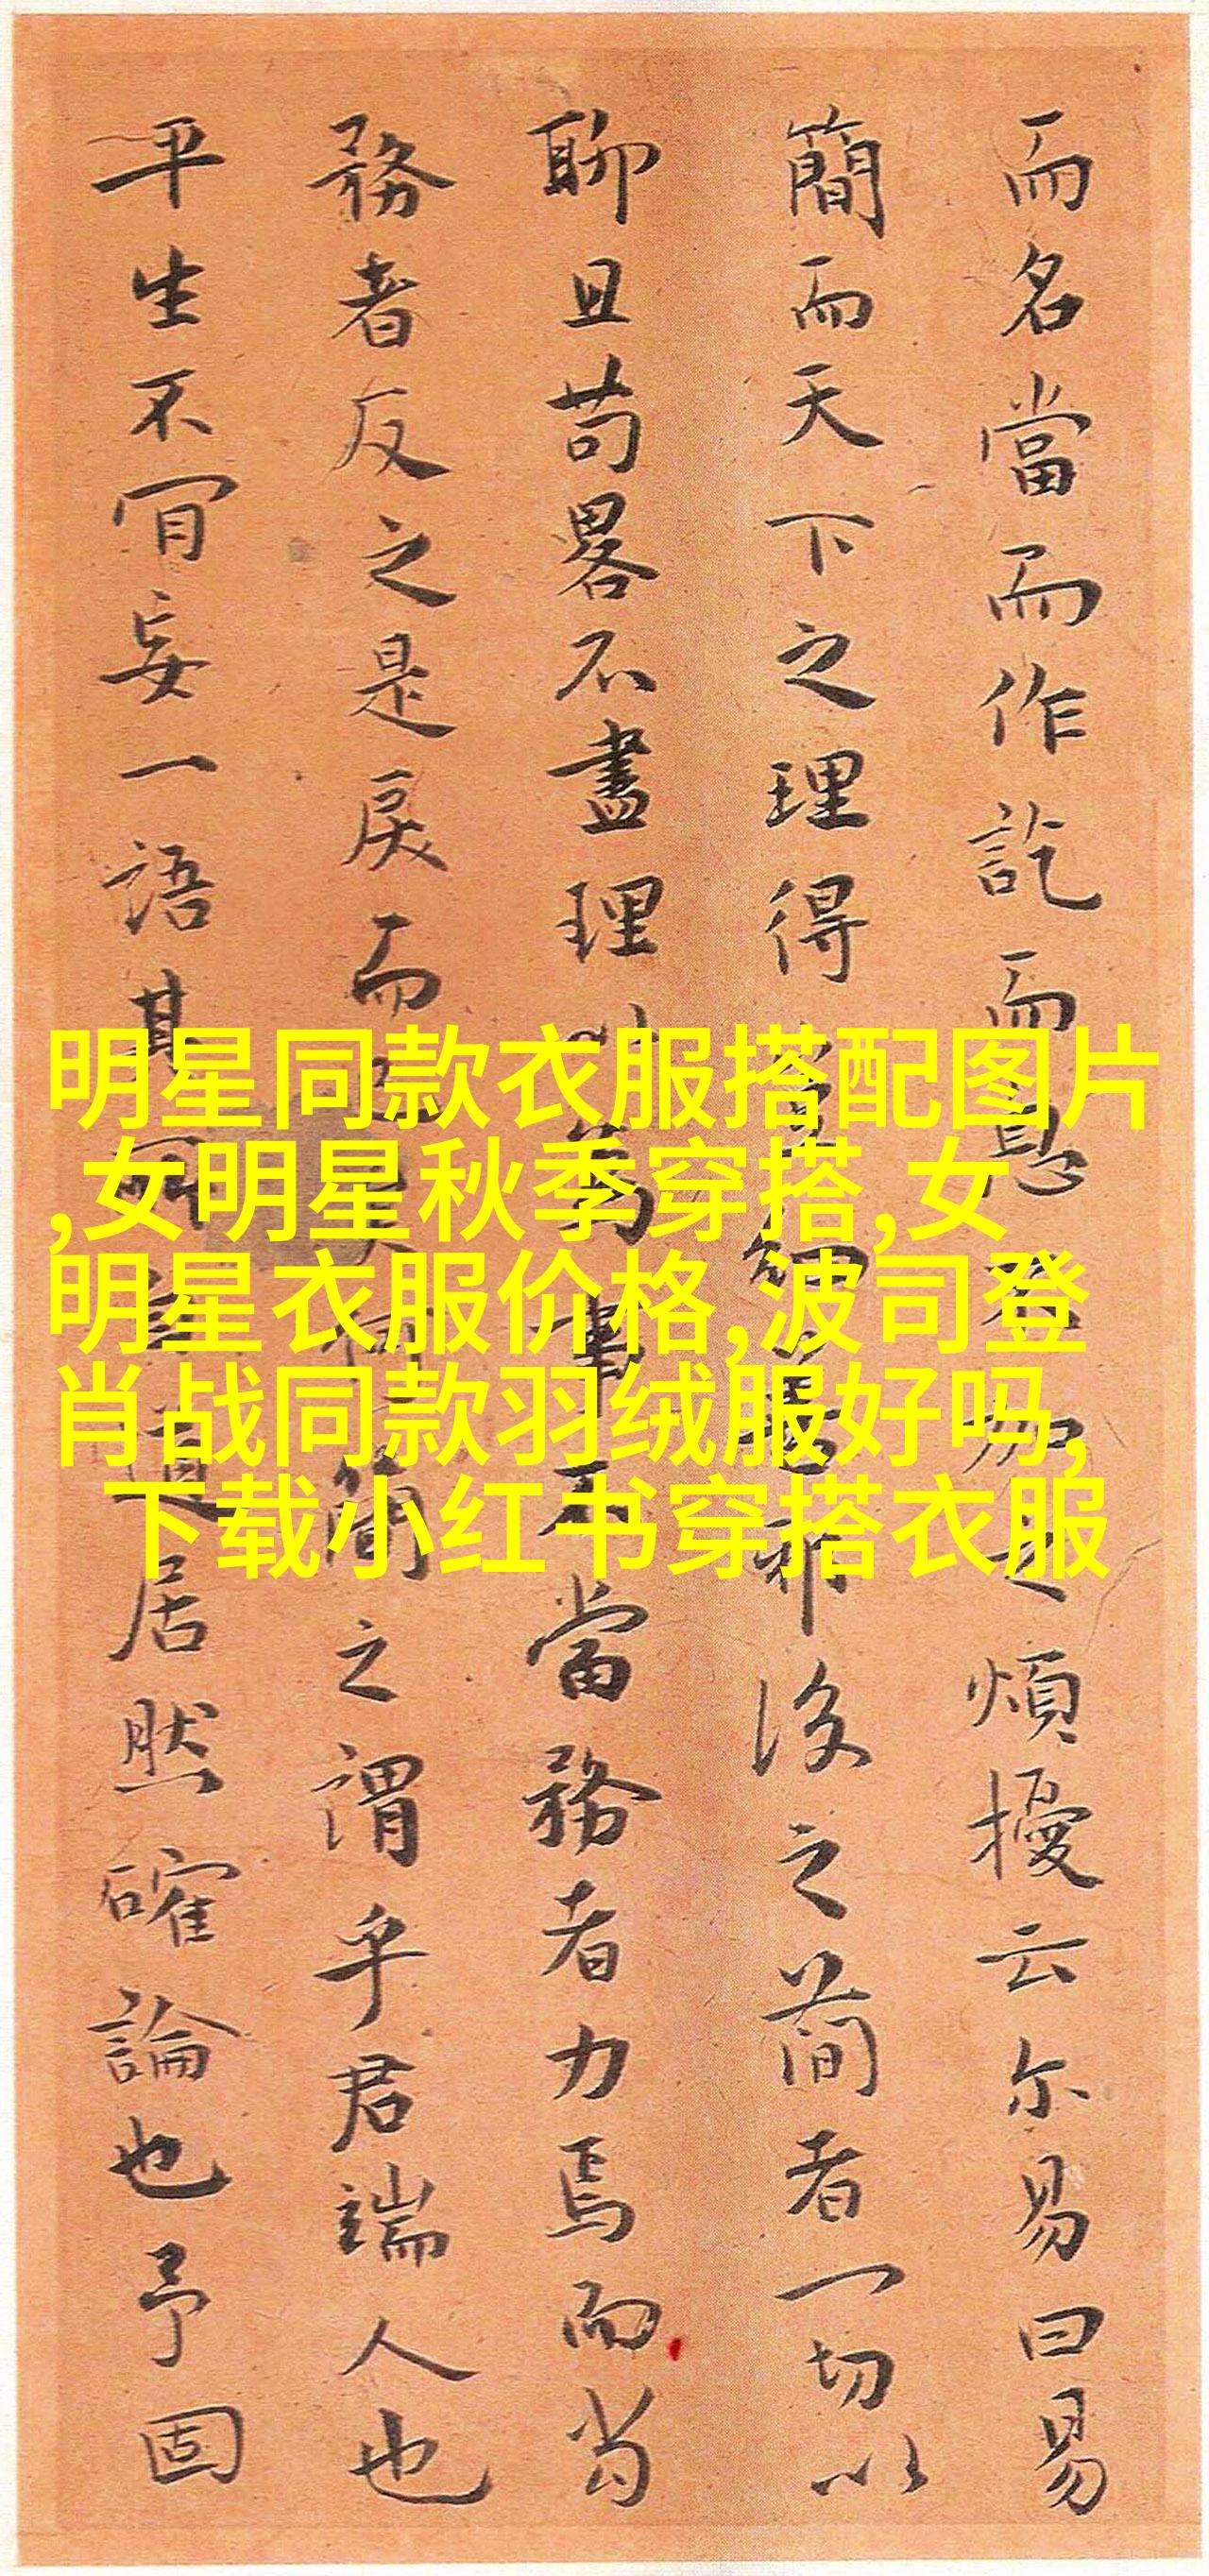 而名當而作訖而息
煩擾云尔易曰易
簡而天下之理得
後之简者一切以
聊且苟畧不盡理
當務者力焉而苟
務者反之是戾而
簡之謂乎君端人也
平生不肎妄一語其
居然確論也予固
明星同款衣服搭配图片
,女明星秋季穿搭,女
明星衣服价格,波司登
肖战同款羽绒服好吗,
下载小红书穿搭衣服